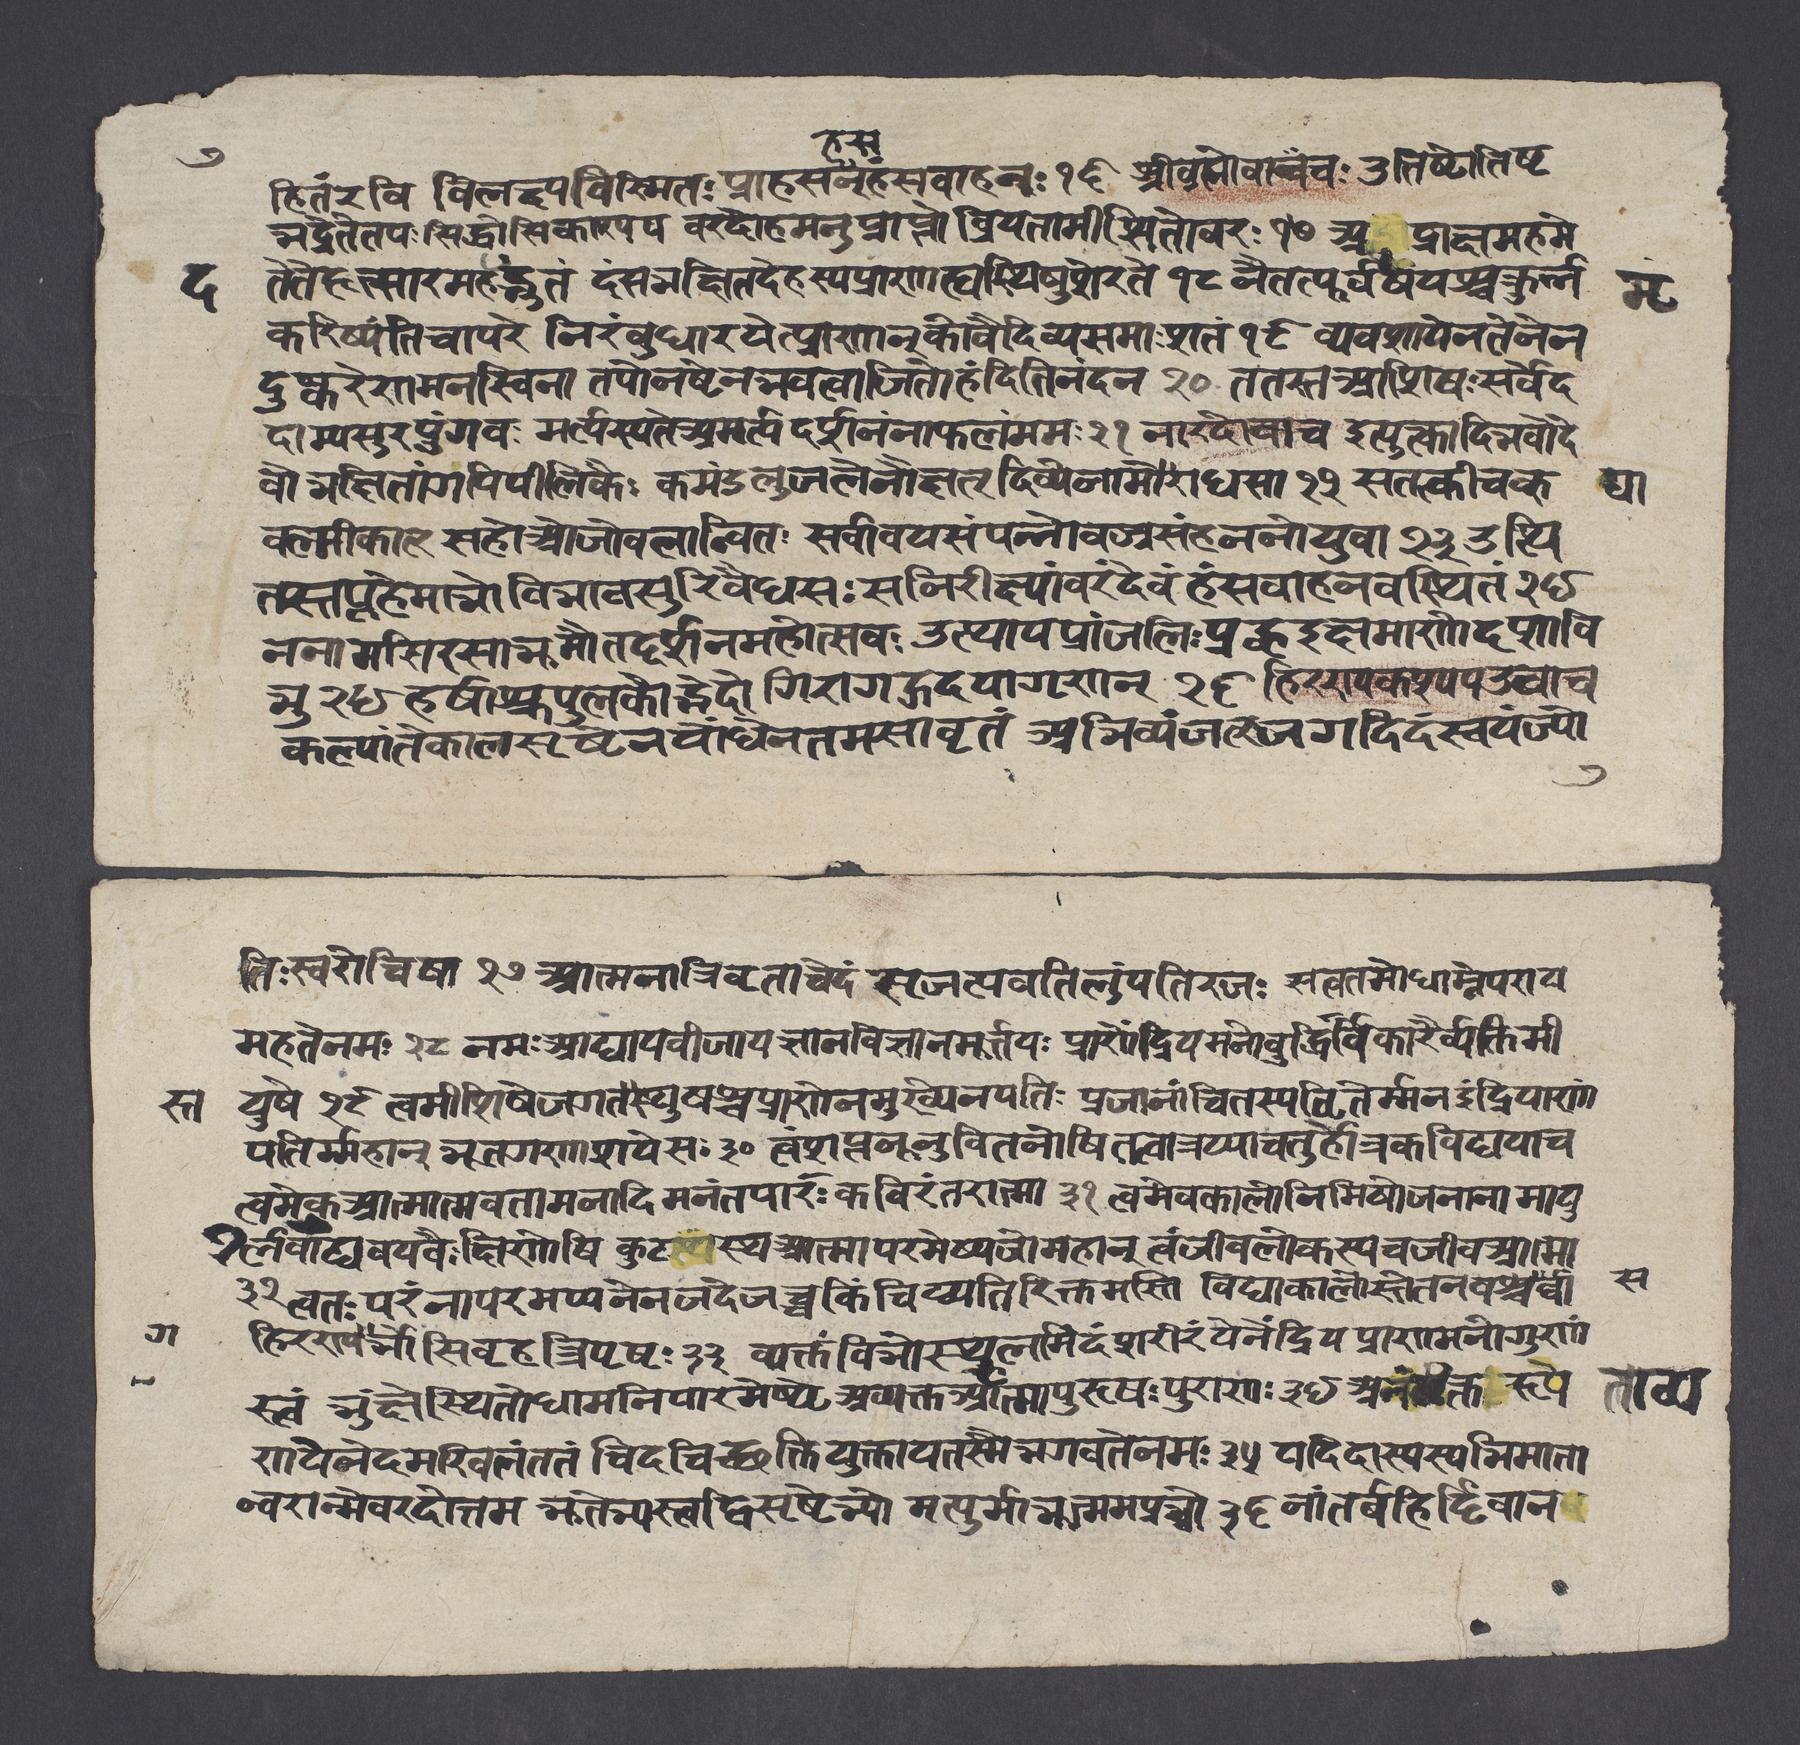 ७
हस
हितं रवि विलक्ष्य विस्मितः प्राहसन्हंसवाहनः १६ श्रीब्रह्मोवाचंचः उत्तिष्टोतिष्ट
भद्रंतेतपःसिद्धोसिकास्यप वरदोहमनुप्राप्तो व्रियतामीप्सितोवरः १७ अ प्राक्षमहमे
द तेतैहृत्सारमहंद्भुतं दंसभक्षितदेहस्यप्राणाह्यस्थिषुशेरते १८ नैतत्पूर्वर्षयश्चक्रुर्न्न
करिष्यंतिचापरे निरंबुधारयेत्प्राणान्कोवैदिव्यसमाःशतं १९ व्यवशायेनतेनेन
दुष्करेणमनस्विना तपोनष्टेनभवत्वाजितोहंदितिनंदन २० ततस्तआशिषःसर्वद
दाम्यसुरपुंगवः मर्त्यस्यतेअमर्त्य दर्शनंनाफलंममः २१ नारदोवाच इत्युत्क्वादिभवोदे
वोभक्षितांगपिपीलिकैः कमंडलुजलेनौक्षत् दिव्येनामोराधसा २२ सतत्कीचक द्या
वल्मीकात् सहोओजोबलान्वितः सर्वावयसंपन्नोवज्रसंहननोयुवा २३ उत्थि
तस्तप्तहेमाभोविभावसुरिवैधसः सनिरीक्ष्यांवरंदेवं हंसवाहनवस्थितं २४
ननामसिरसाभूमौतद्दर्शनमहोत्सवः उत्थायप्रांजलिःप्रह्वइक्षमाणोदृशावि
भु २५ हर्षाश्रुपुलकोद्भेदो गिरागद्गदयागृणन् २६ हिरण्यकश्यपउवाच
कल्पांतेकालसृष्टेनयोंधेनतमसावृतं अभिव्यंजत्जगदिदंस्वयंज्यो
७
तिःस्वरोचिषा २७ आत्मनात्रिवृताचेदं सृजत्यवतिलुंपतिरजः सत्वतमोधाम्नेपराय
महतेनमः २८ नमःआद्यायवीजायज्ञानविज्ञानमूर्त्तयः प्राणेंद्रियमनोबुद्धिर्विकारैर्व्यक्तिमी
स्त युषे २९ त्वमीशिषेजगतस्थुषश्चप्राणेनमुख्येनपतिः प्रजानांचितस्यचितेर्म्मनइंद्रियाणां
पतिर्म्महान् भूतगणाशयेसः ३० त्वंशप्ततन्नुवितनोषितत्वात्रय्याचतुर्होत्रकविद्ययाच
त्वमेकआत्मात्मवतामनादिमनंतपारःकविरंतरात्मा ३१ त्वमेवकालोनिमिषोजनानामायु
र्लवाद्यवयवैःक्षिणोषि कुट स्थआत्मापरमेष्यजोमहान् त्वंजीवलोकस्यचजीवआमा
३२ त्वतःपरंनापरमप्यनेनजदेजच्चकिंचिव्यतिरिक्तमस्ति विद्याकालास्तेतनवश्चर्वा स
ग हिरण्यर्भोसिवृहत्रिपृषः ३३ व्यक्तंविभोस्थूलमिदंशरीरंयेनेंद्रियप्राणमनोगुणां
स्त्वं भुंक्षेस्थितोधामनिपारमेष्ठ्येअव्यक्तआत्मापुरुषःपुराणः ३४ अनं क्त रूपे ताव्य
णयेनेदमखिलंततं चिदचिच्छक्तियुक्तायतस्मैभगवतेनमः ३५ यदिदास्यस्यभिमाता
न्वरान्मेवरदोत्तम भूतेभ्यस्त्वद्विसृष्टेभ्यो मृत्युर्माभून्ममप्रभो ३६ नांतर्बहिर्द्दिवान